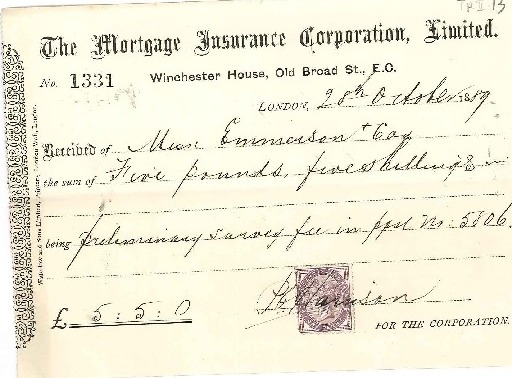 The Mortgage Insurance Corporation, Limited.
No. 1331 Winchester House, Old Broad St., E.C.
LONDON, 28th October 1889
Received of Messrs Emmerson & Coy
the sum of Five pounds, five shillings
being preliminary survey fee in ppsl No. 5806.
£ 5 : 5 : 0
Harrison
FOR THE CORPORATION.